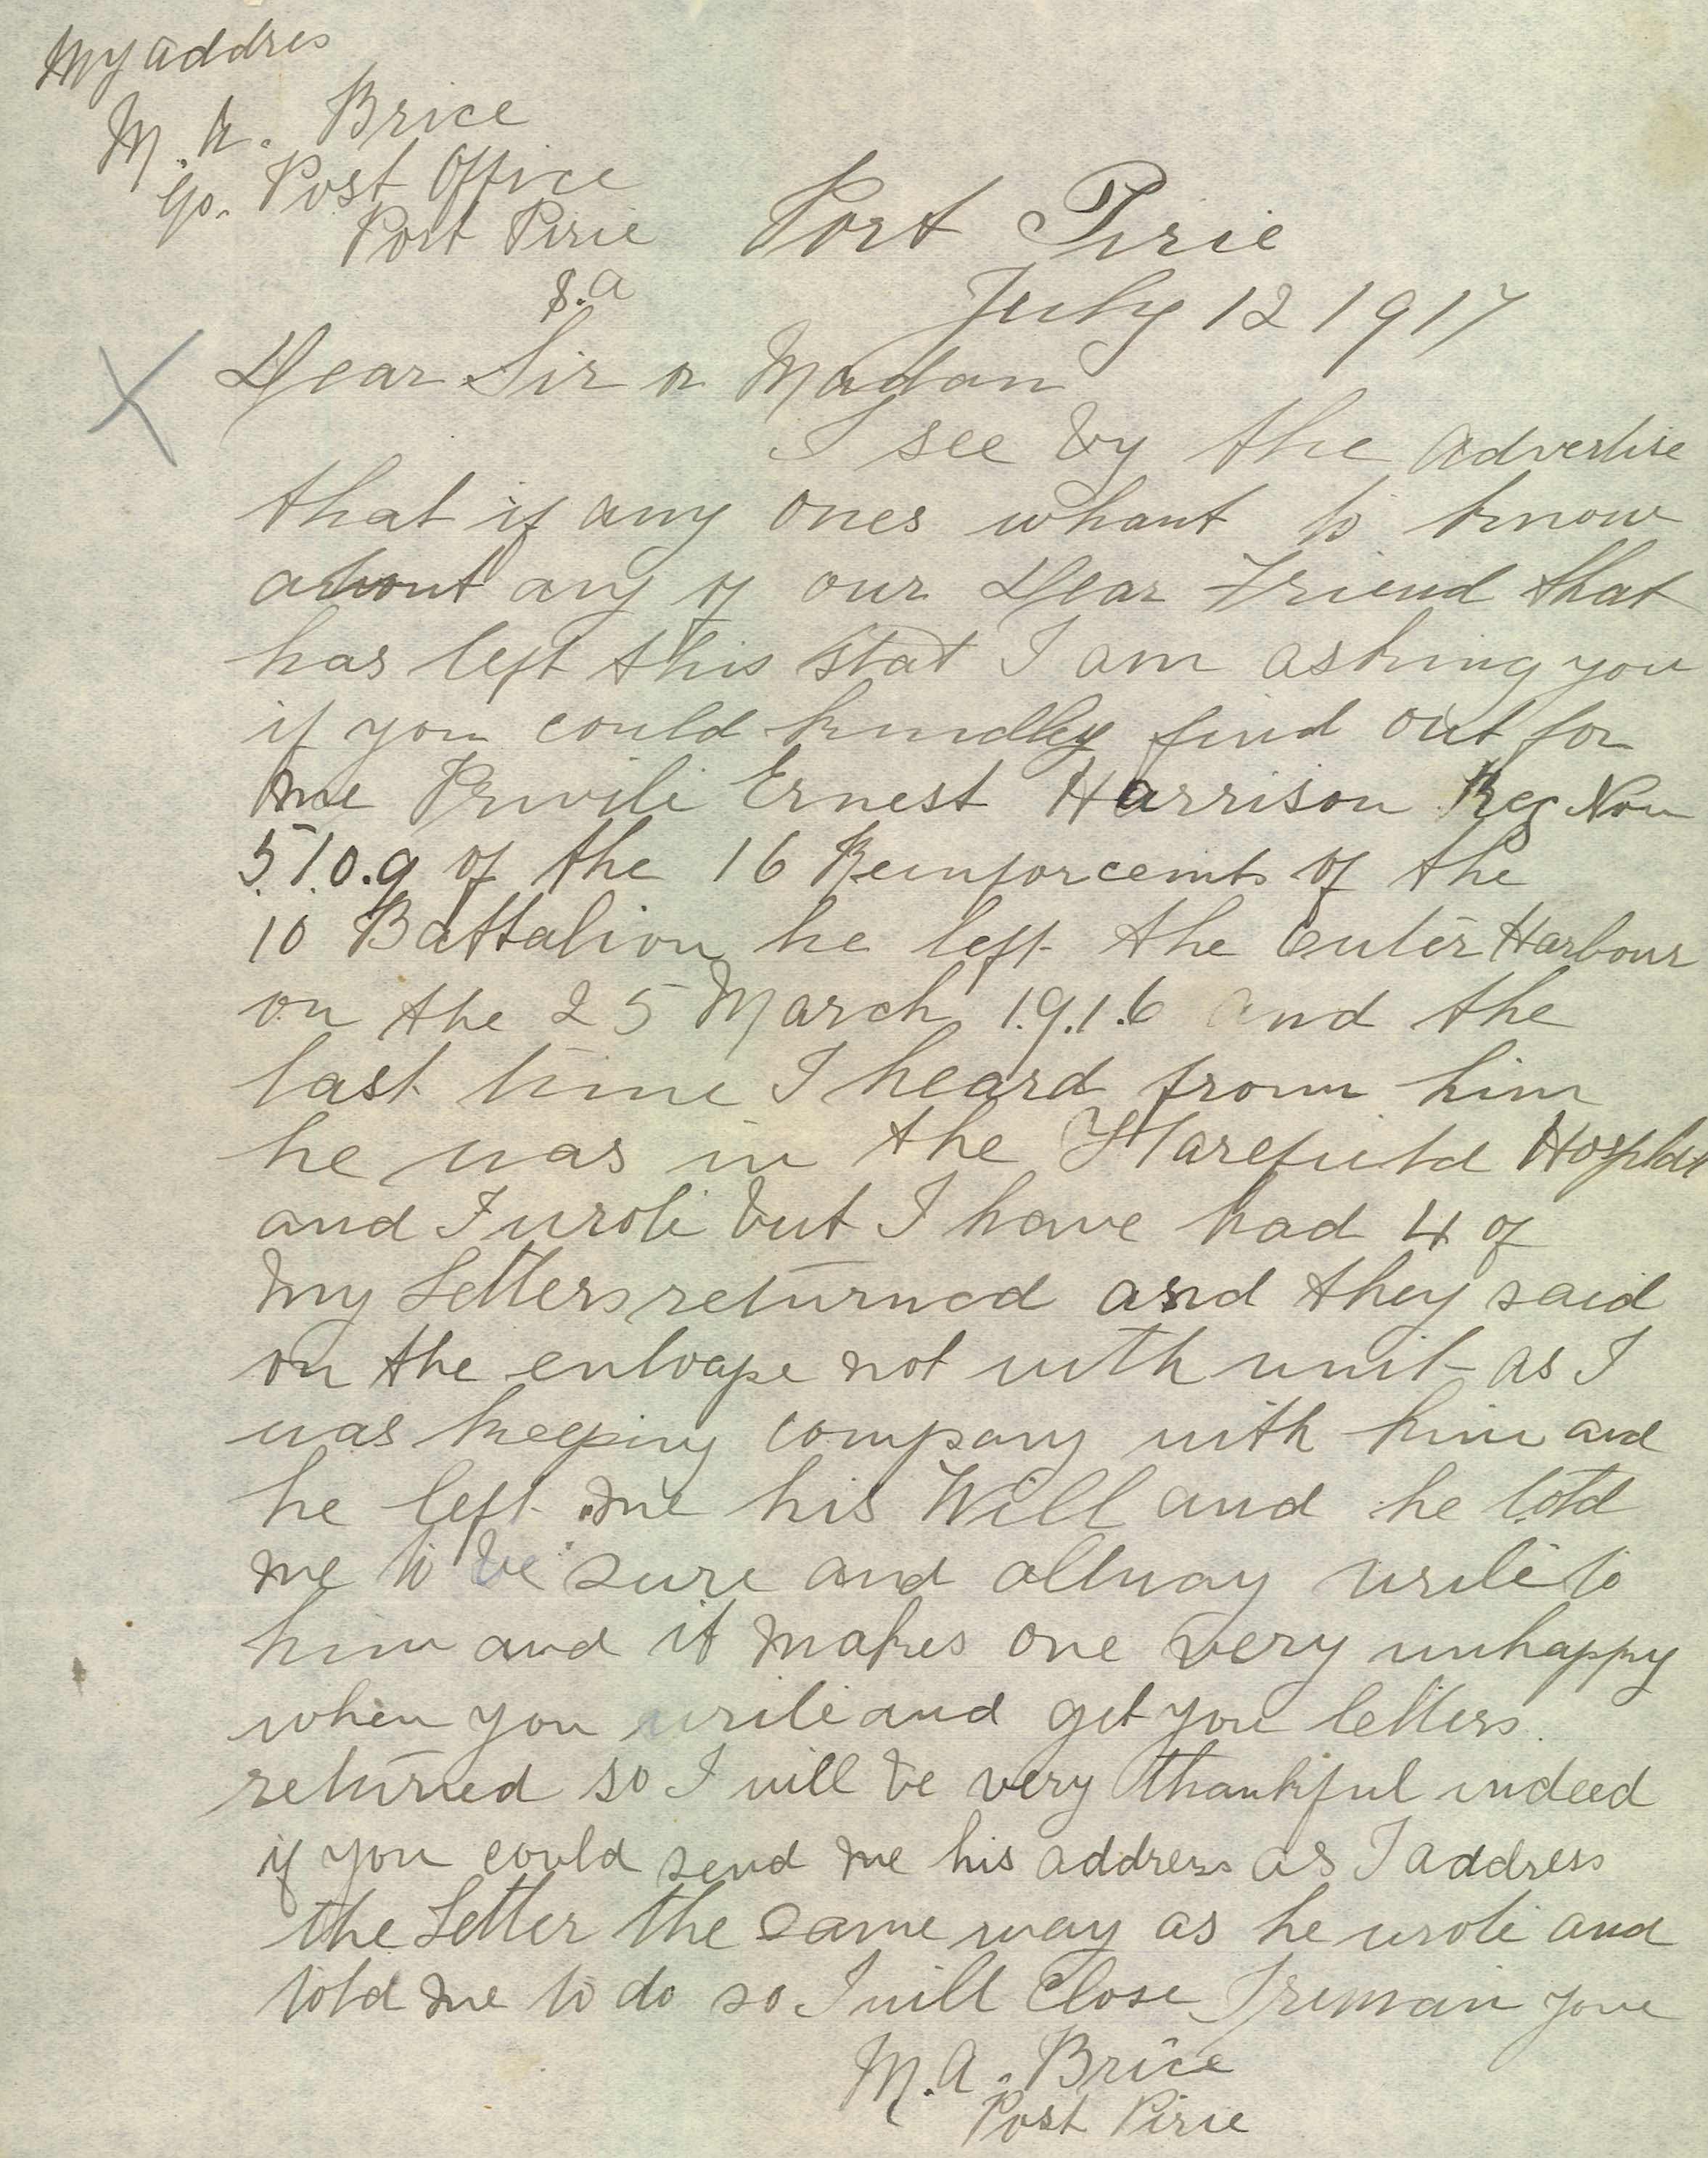 My addres
M. A. Brice
C/o. Post Office
Port Pirie
S.A
Port Pirie
July 12 1917
Dear Sir or Madam
I see by the advertise
that if any ones whant to know
about any of our Dear Friend that
has left this stat I am asking you
if you could kindley find out for
me Privite Ernest Harrison Reg Nom
5.1.0.9 of the 16 Reinforcemts of the
10 Battalion he left the Outer Harbour
on the 25 March 1.9.1.6 and the
last time I heard from him
he was in the Harefield
and I wrote but I have had 4 of
my Letters returned and they said
on the envloape not with unit as I
was keeping company with him and
he left me his Will and he told
me to be sure and allway write to
him and it makes one very unhappy
when you write and get you letters
returned so I will be very thankful indeed
if you could send me his address as I address
the Letter the same way as he wrote and
told me to do so I will Close I remain
M.A. Brice
Port Pirie